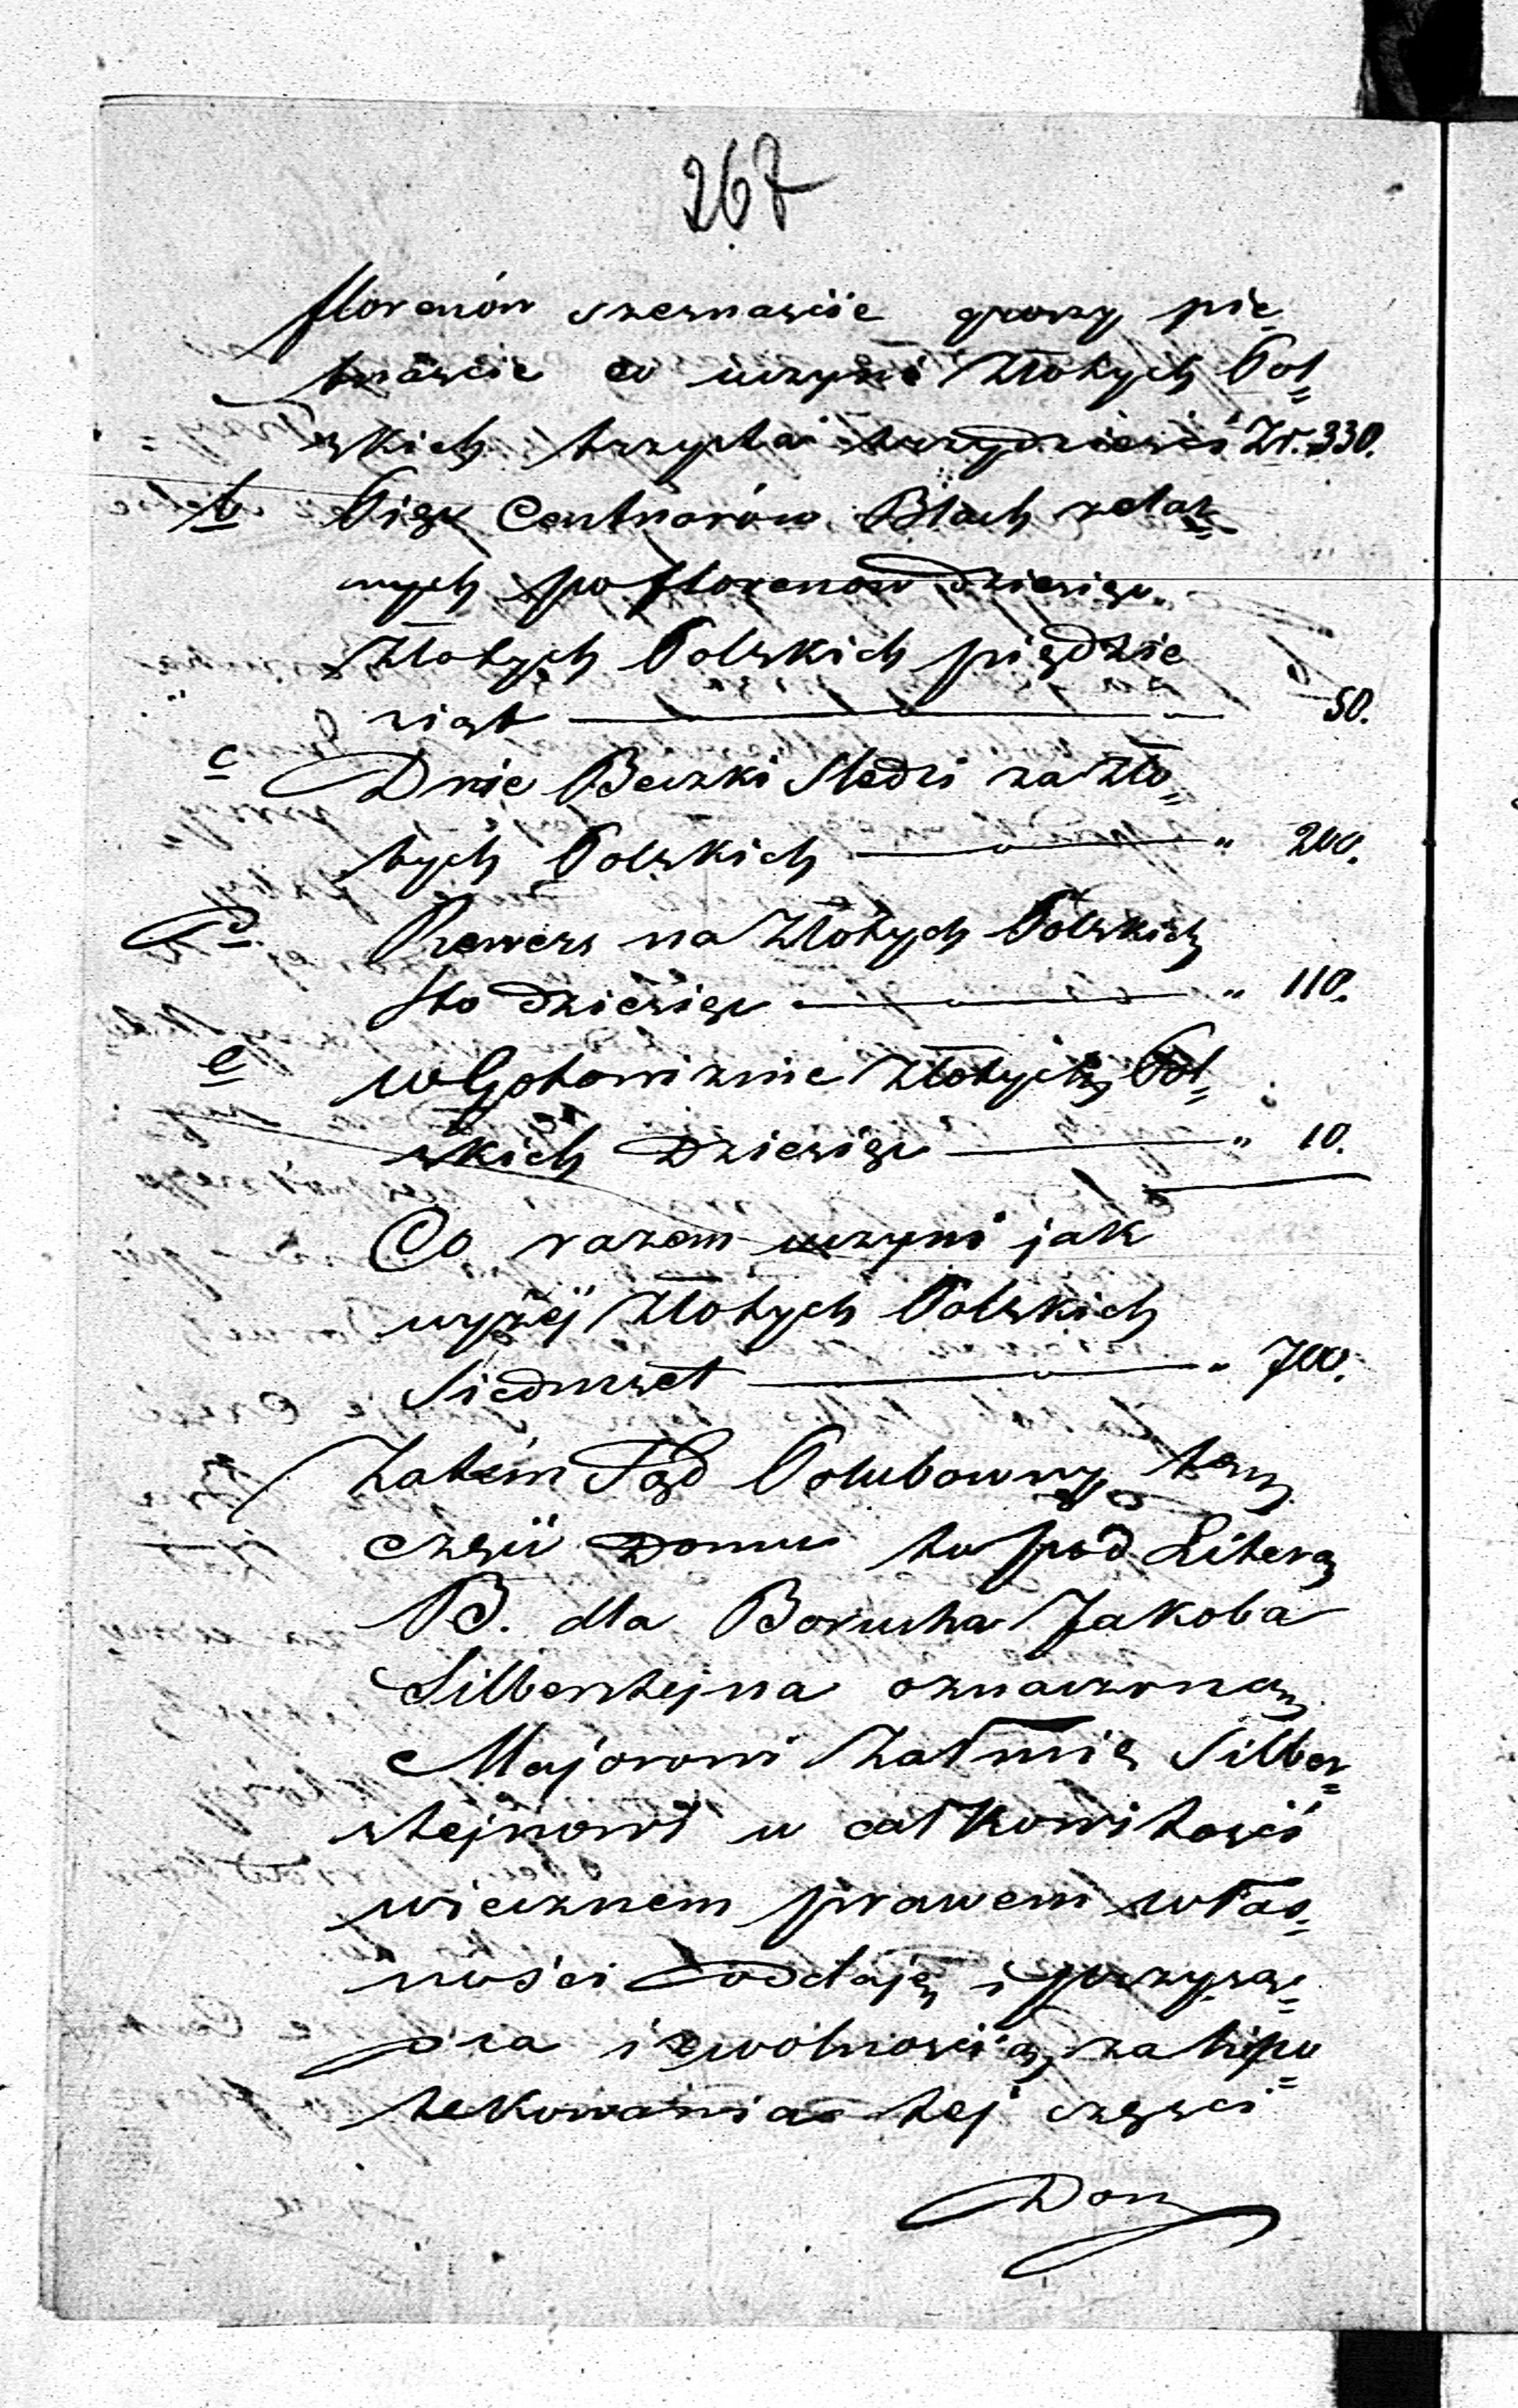 267
florenów szesnaście groszy pię
tnáscie co uczyni Złotych Pol=
skich trzysta trzydziesci Zł. 330.
b Pięć Centnarów Blach żelaz=
nych po florenow dziesięć
Złotych Polskich pięćdzie
siąt — " 50.
c Dwie Beczki Sledzi za Zło=
tych Polskich — " 200.
d Rewers na Złotych Polskich
Sto dziesięć — " 110.
e w Gotowiznie Złotych Pol=
skich Dziesięć — " 10.
Co razem uczyni jak
wyżej Złotych Polskich
Siedmset — " 700.
Zatém Sąd Polubowny tęz
częśći Domu tu pod Literą
B. dla Borucha Jakoba
Silbersztejna oznaczoną
Majorowi Zalmie Silber=
sztejnowi w całkowitości
wiecznem prawem włas=
ności oddaję i przysą=
dza i z wolnością zahipo=
tekowania tej części
Dom